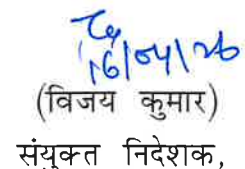 16/04/26
(विजय कुमार)
संयुक्त निदेशक,